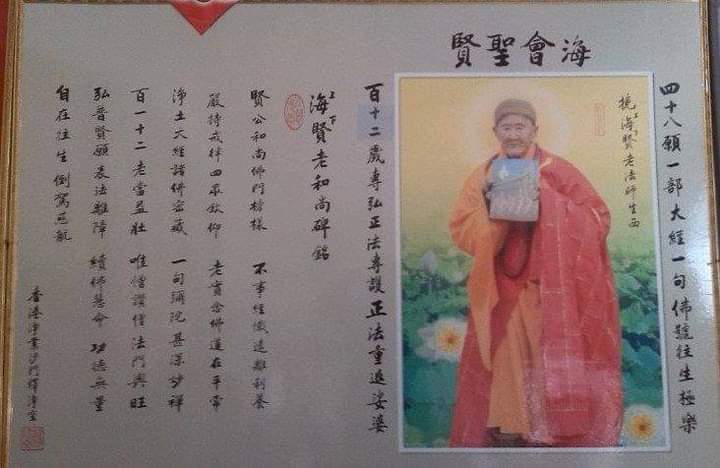 海會聖賢
四十八願一部大經一句佛號往生極樂
挽上海下賢老法師生西
百十二歲專弘正法專護正法重返娑婆
上海下賢老和尚碑銘
賢公和尚佛門榜樣 不事經懺遠離利養
嚴持戒律四眾欽仰 老實念佛道在平常
淨土大經諸佛密藏 一句彌陀甚深妙禪
百一十二老當益壯 唯僧讚僧法門興旺
弘普賢願表法離障 續佛慧命 功德無量
自在往生倒駕慈航
香港淨業沙門釋淨空